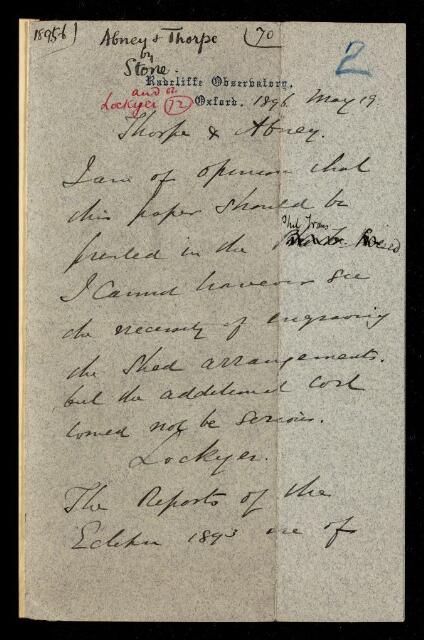 1895-6
Abney & Thorpe
70
by
Stone.
2
Radcliffe Observatory,
and on
Lockyer 72
Oxford. 1896 May 19
Thorpe & Abney.
I am of opinion that
this paper should be
Phil Trans
printed in the
I cannot however see
the necessity of engraving
the shed arrangements.
but the additional cost
would not be serious.
Lockyer.
The Reports of the
Eclipse 1893 are of